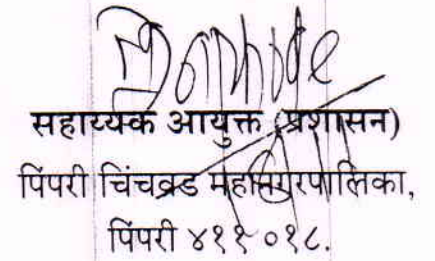 सहाय्यक आयुक्त (प्रशासन)
पिंपरी चिंचवड महानगरपालिका,
पिंपरी ४११ ०१८.